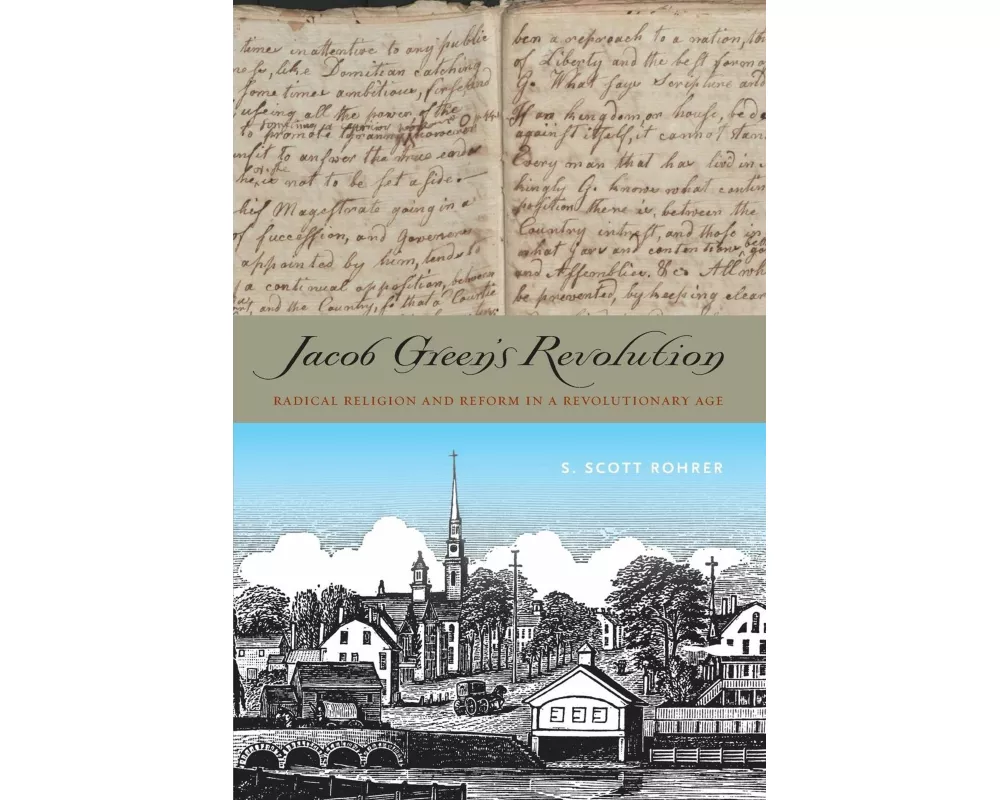 time inattentive to any public
like Domitian catching
some time ambitious,
using all the power of the
to promote
unfit to answer the true ends
is not to be set aside.
Magestrate going in a
of succession, and Governors
appointed by him, tends to
a continual opposition, between
and the Country, so that a
ben a reproach to a nation,
of Liberty and the best form
G. What says Scripture and
If an kingdom, or house, be
against itself, it cannot
Every man that has lived in
G. knows what
position there is, between the
Country interest, and those in
what Jars and contentions
and Assemblies. &c. All
be prevented, by keeping clear
Jacob Green's Revolution
RADICAL RELIGION AND REFORM IN A REVOLUTIONARY AGE
S. SCOTT ROHRER